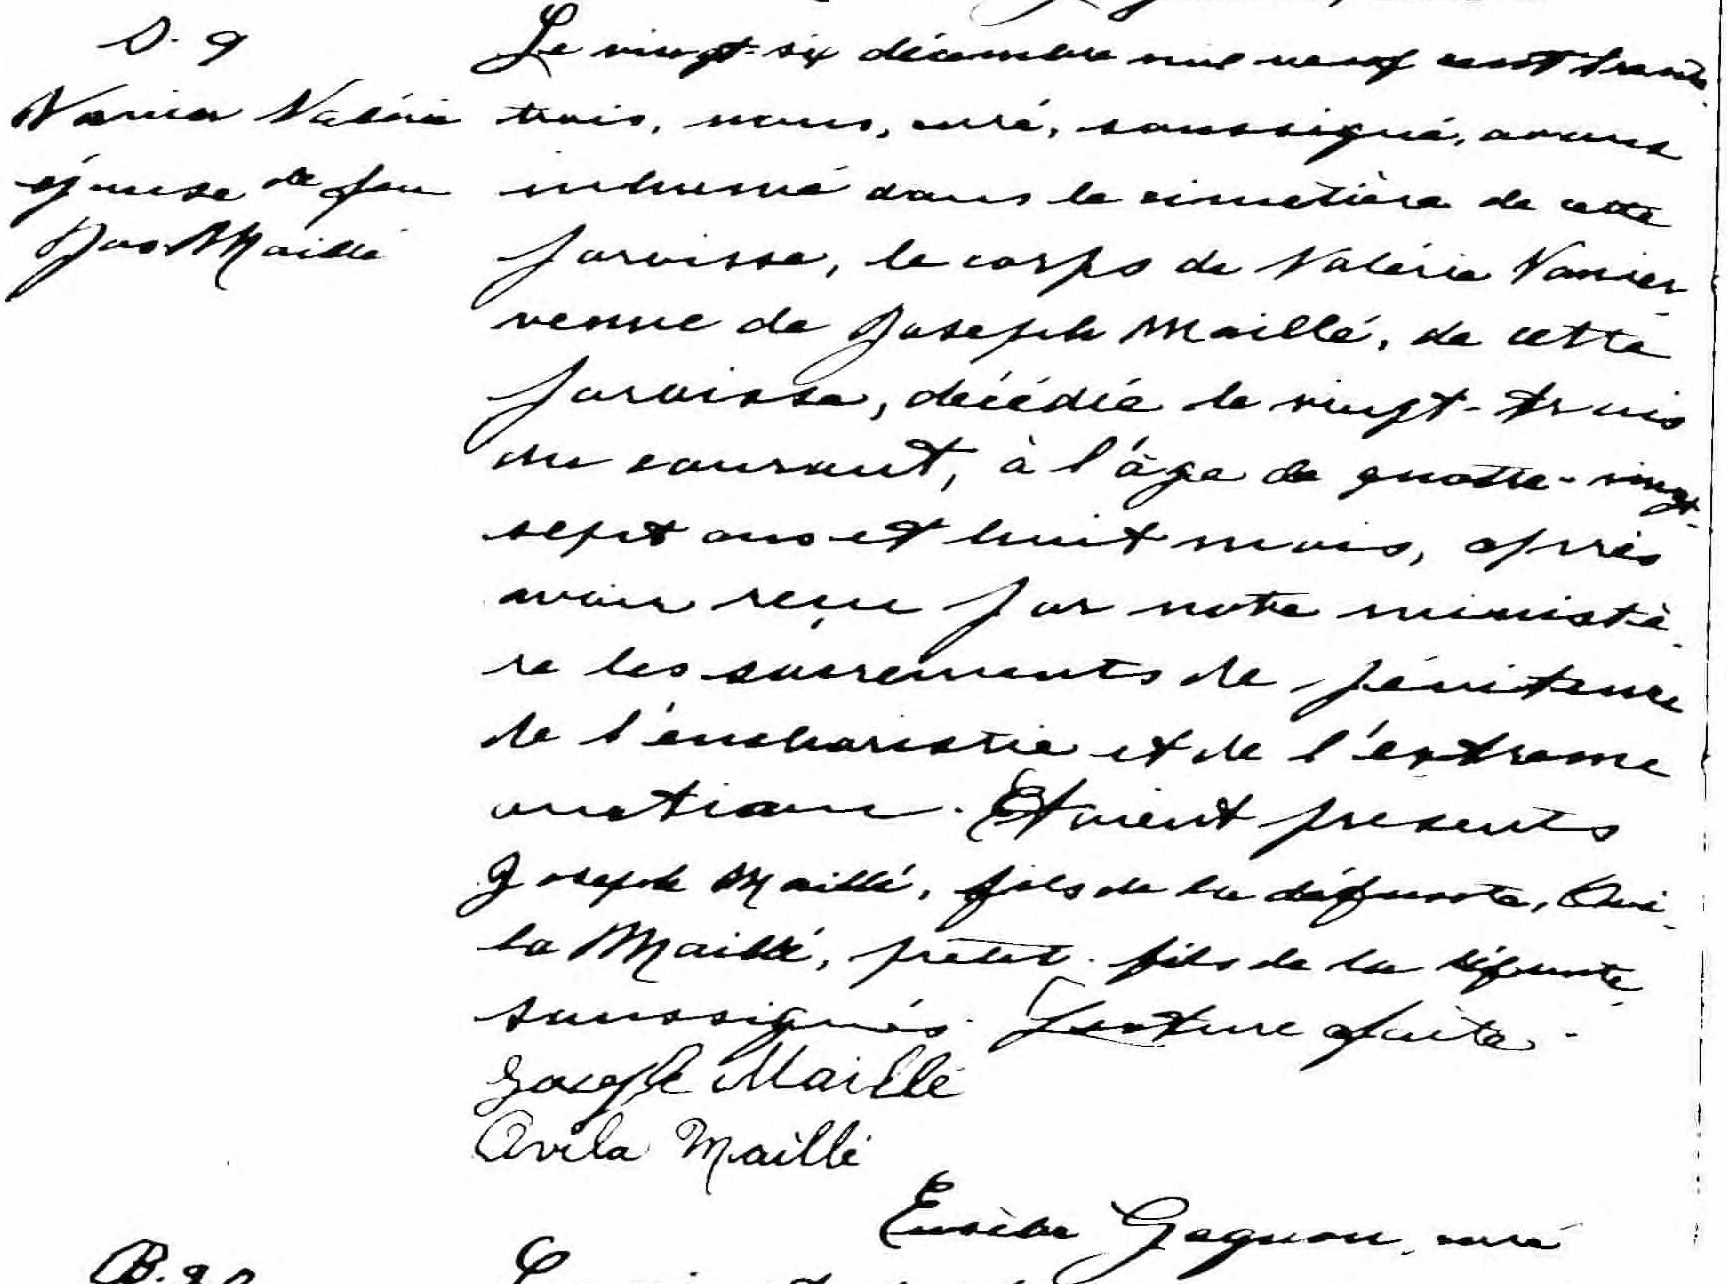 S. 9
Vanier Valérie
épouse de feu
Jos Maillé
Le vingt-six décembre mil neuf cent trente
trois, nous, curé, soussigné, avons
inhumé dans le cimetière de cette
paroisse, le corps de Valérie Vanier
veuve de Joseph Maillé, de cette
paroisse, décédée le vingt-trois
du courant, à l'âge de quatre-vingt-
sept ans et huit mois, après
avoir reçu par notre ministè-
re les sacrements de pénitence
de l'eucharistie et de l'extreme
onction. Etaient presents
Joseph Maillé, fils de la défunte, Avi-
la Maillé, petit-fils de la défunte
soussignés. Lecture faite.
Joseph Maillé
Avila Maillé
Eusèbe Gagnon, curé